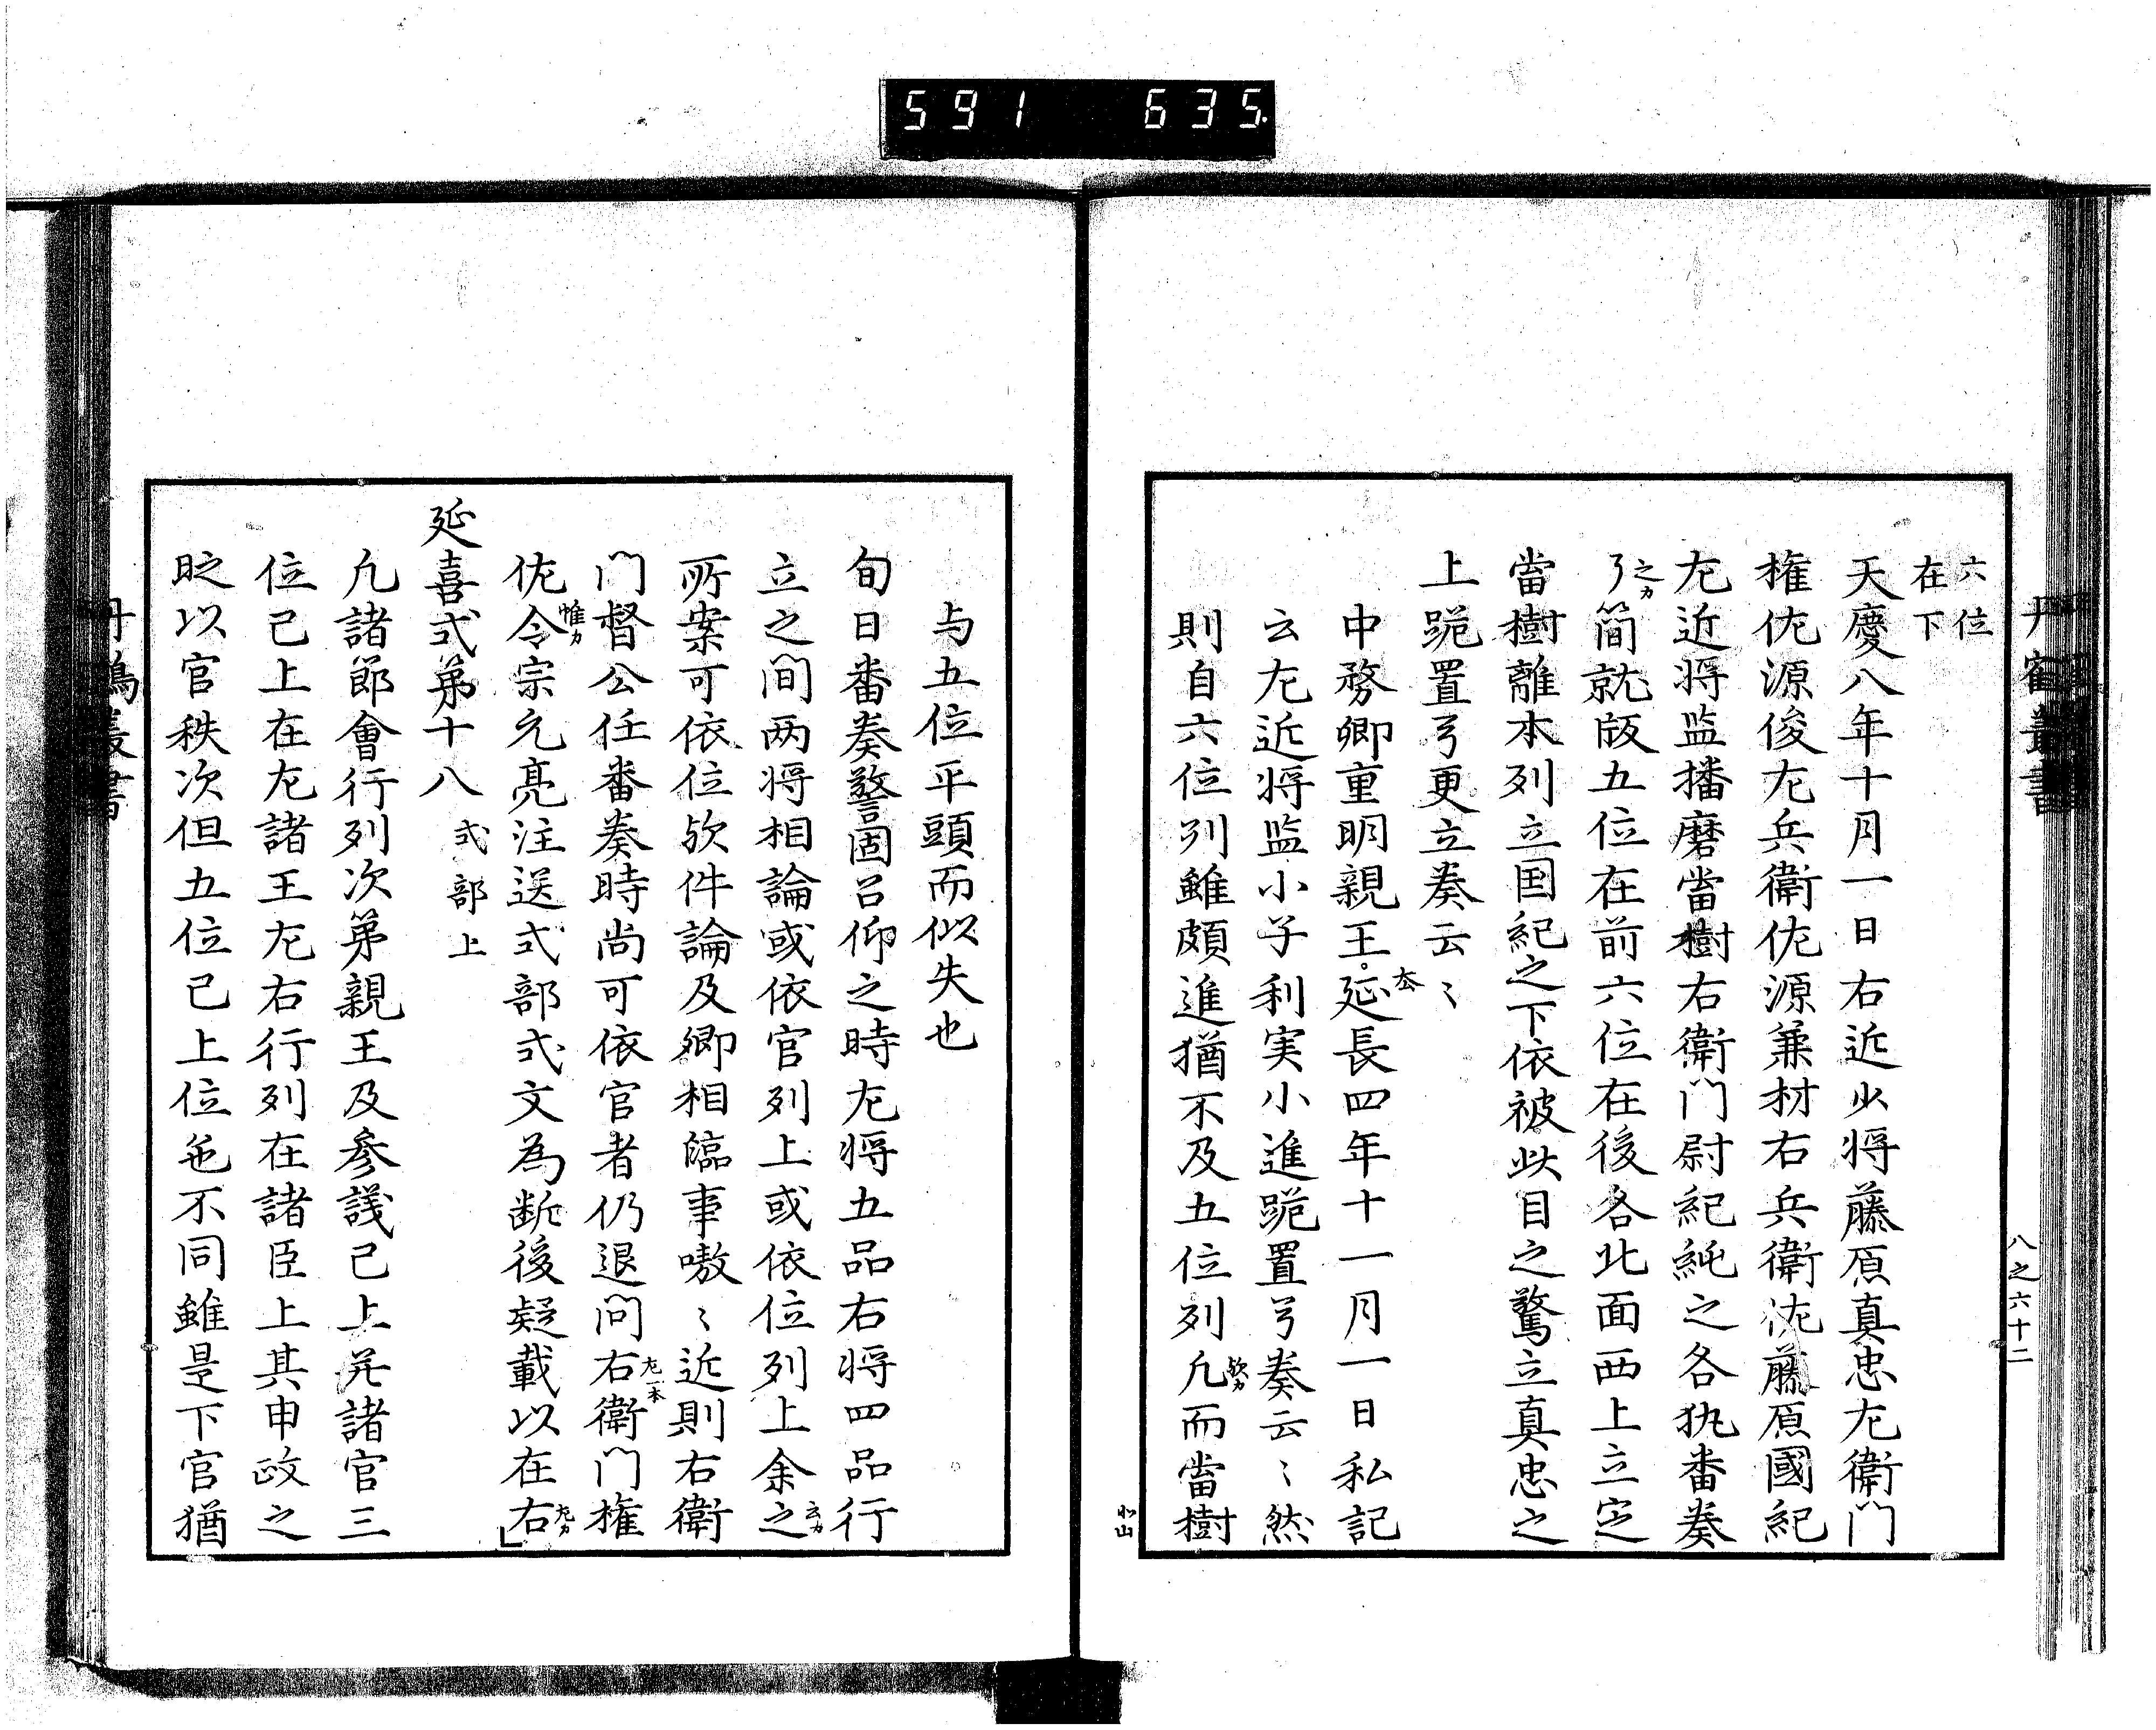 591 635
丹鶴叢書
八之六十二
六位
在下
天慶八年十月一日右近少将藤原真忠左衛門
権佐源俊左兵衛佐源兼材右兵衛佐藤原國紀
左近将监播磨當樹右衛門尉紀純之各执番奏
了之カ簡就版五位在前六位在後各北面西上立定
當樹離本列立国紀之下依被此目之驚立真忠之
上跪置弓更立奏云〻
中務卿重明親王延長四年十一月一日私記
云左近将监小子利実小進跪置弓奏云〻然
則自六位列雖頗進猶不及五位列凢歟カ而當樹
与五位平頭而似失也
旬日番奏警固召仰之時左将五品右将四品行
立之间两将相論或依官列上或依位列上余之云カ
所案可依位欤件論及卿相臨事嗷〻近則右衛
門督公任番奏時尚可依官者仍退问右左一本衛门権
佐令惟カ宗允亮注送式部式文為断後疑載以在右左カ
延喜式苐十八 式部上
凢諸節會行列次苐親王及参議已上并諸官三
位已上在左諸王左右行列在諸臣上其申政之
时以官秩次但五位已上位色不同雖是下官猶
丹鶴叢書